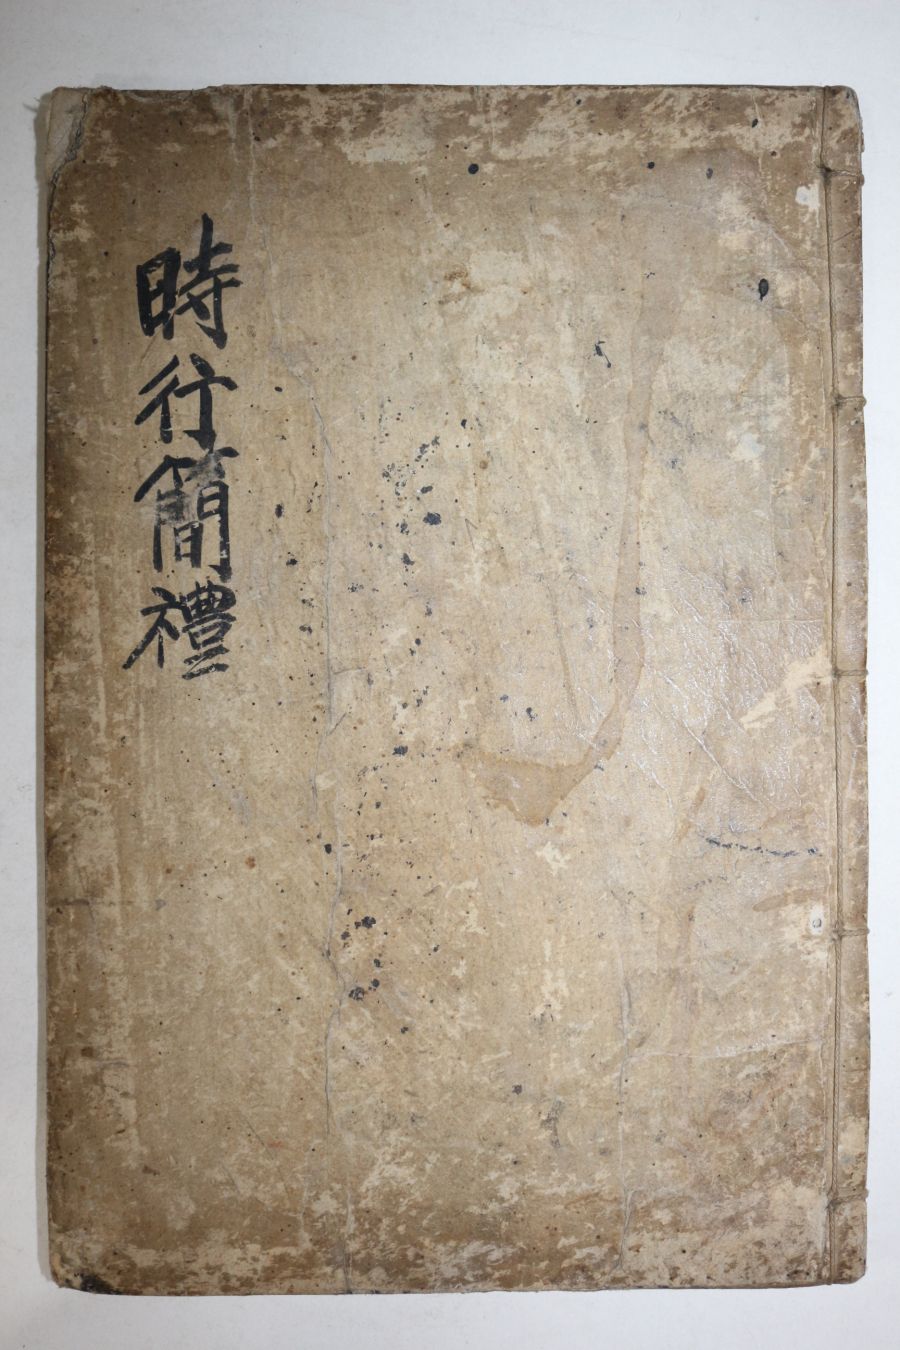 時行簡禮